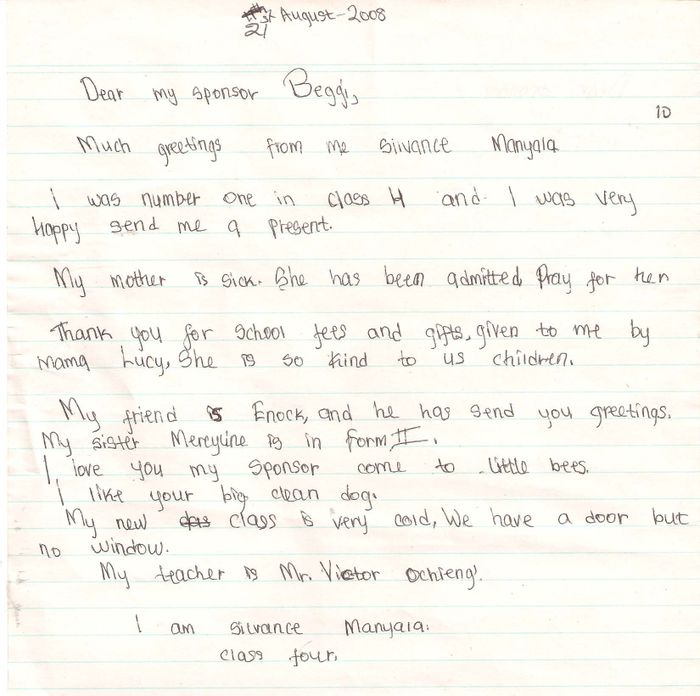 21st August-2008
Dear my sponsor Beggi,
10
Much greetings from me silvance Manyala
I was number one in class 4 and I was very
Happy send me a present.
My mother is sick. She has been admitted, Pray for her
Thank you for school fees and gifts, given to me by
Mama Lucy, She is so kind to us children.
My friend is Enock, and he has send you greetings.
My sister Mercyline is in form II.
I love you my sponsor come to little bees.
I like your big clean dog.
My new class is very cold, We have a door but
no window.
My teacher is Mr. Victor Ochieng'.
I am silvance Manyala.
class four.